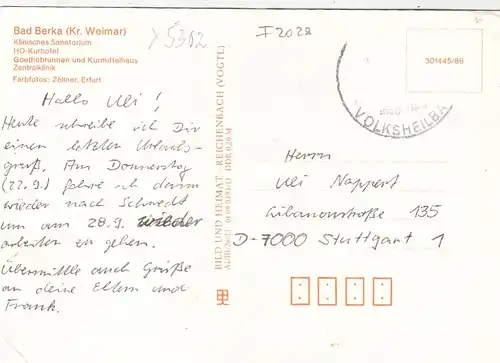 Bad Berka (Kr. Weimar)
Klinisches Sanatorium
HO-Kurhotel
Goethebrunnen und Kurmittelhaus
Zentralklinik
Farbfotos: Zöllner, Erfurt
I 2028
301445/86
VOLKSHEILBÄ
Hallo Uli!
Heute schreibe ich Dir
einen letzten Urlaubs-
gruß. Am Donnerstag
(22.9.) fahre ich dann
wieder nach Schwedt
um am 28.9. wieder
arbeiten zu gehen.
Übermittle auch Grüße
an deine Eltern und
Frank.
BILD UND HEIMAT REICHENBACH (VOGTL)
DDR 0,20 M
Herrn
Uli Nappert
Libanonstraße 135
D-7000 Stuttgart 1